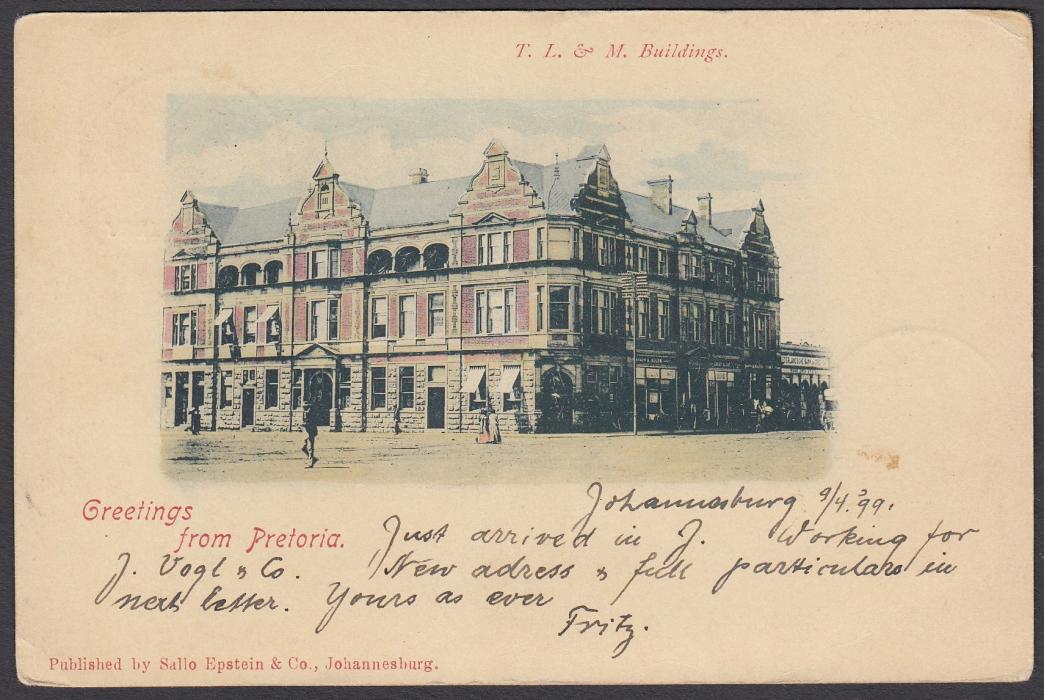 T. L. & M. Buildings.
Greetings
from Pretoria.
Johannesburg 9/4.99.
Just arrived in J. Working for
J. Vogl & Co. New adress & full particulars in
next letter. Yours as ever
Fritz.
Published by Sallo Epstein & Co., Johannesburg.